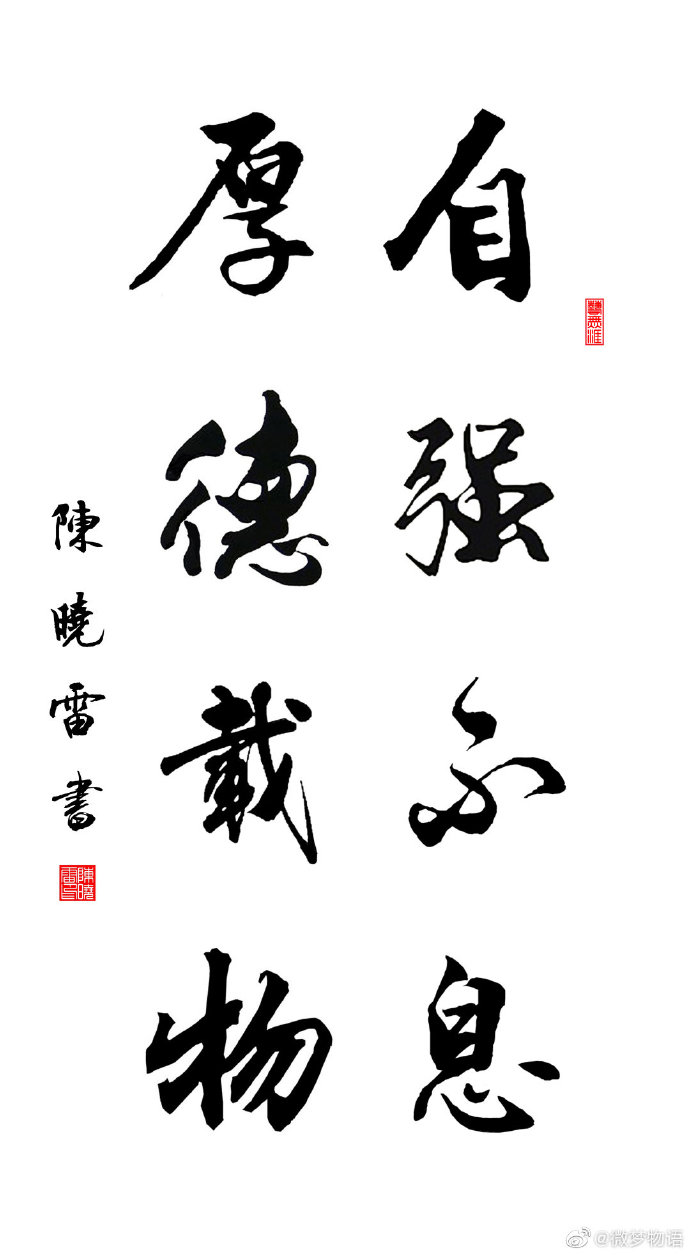 自强不息
厚德載物
陳曉雷書
陳曉雷印
@微梦物语